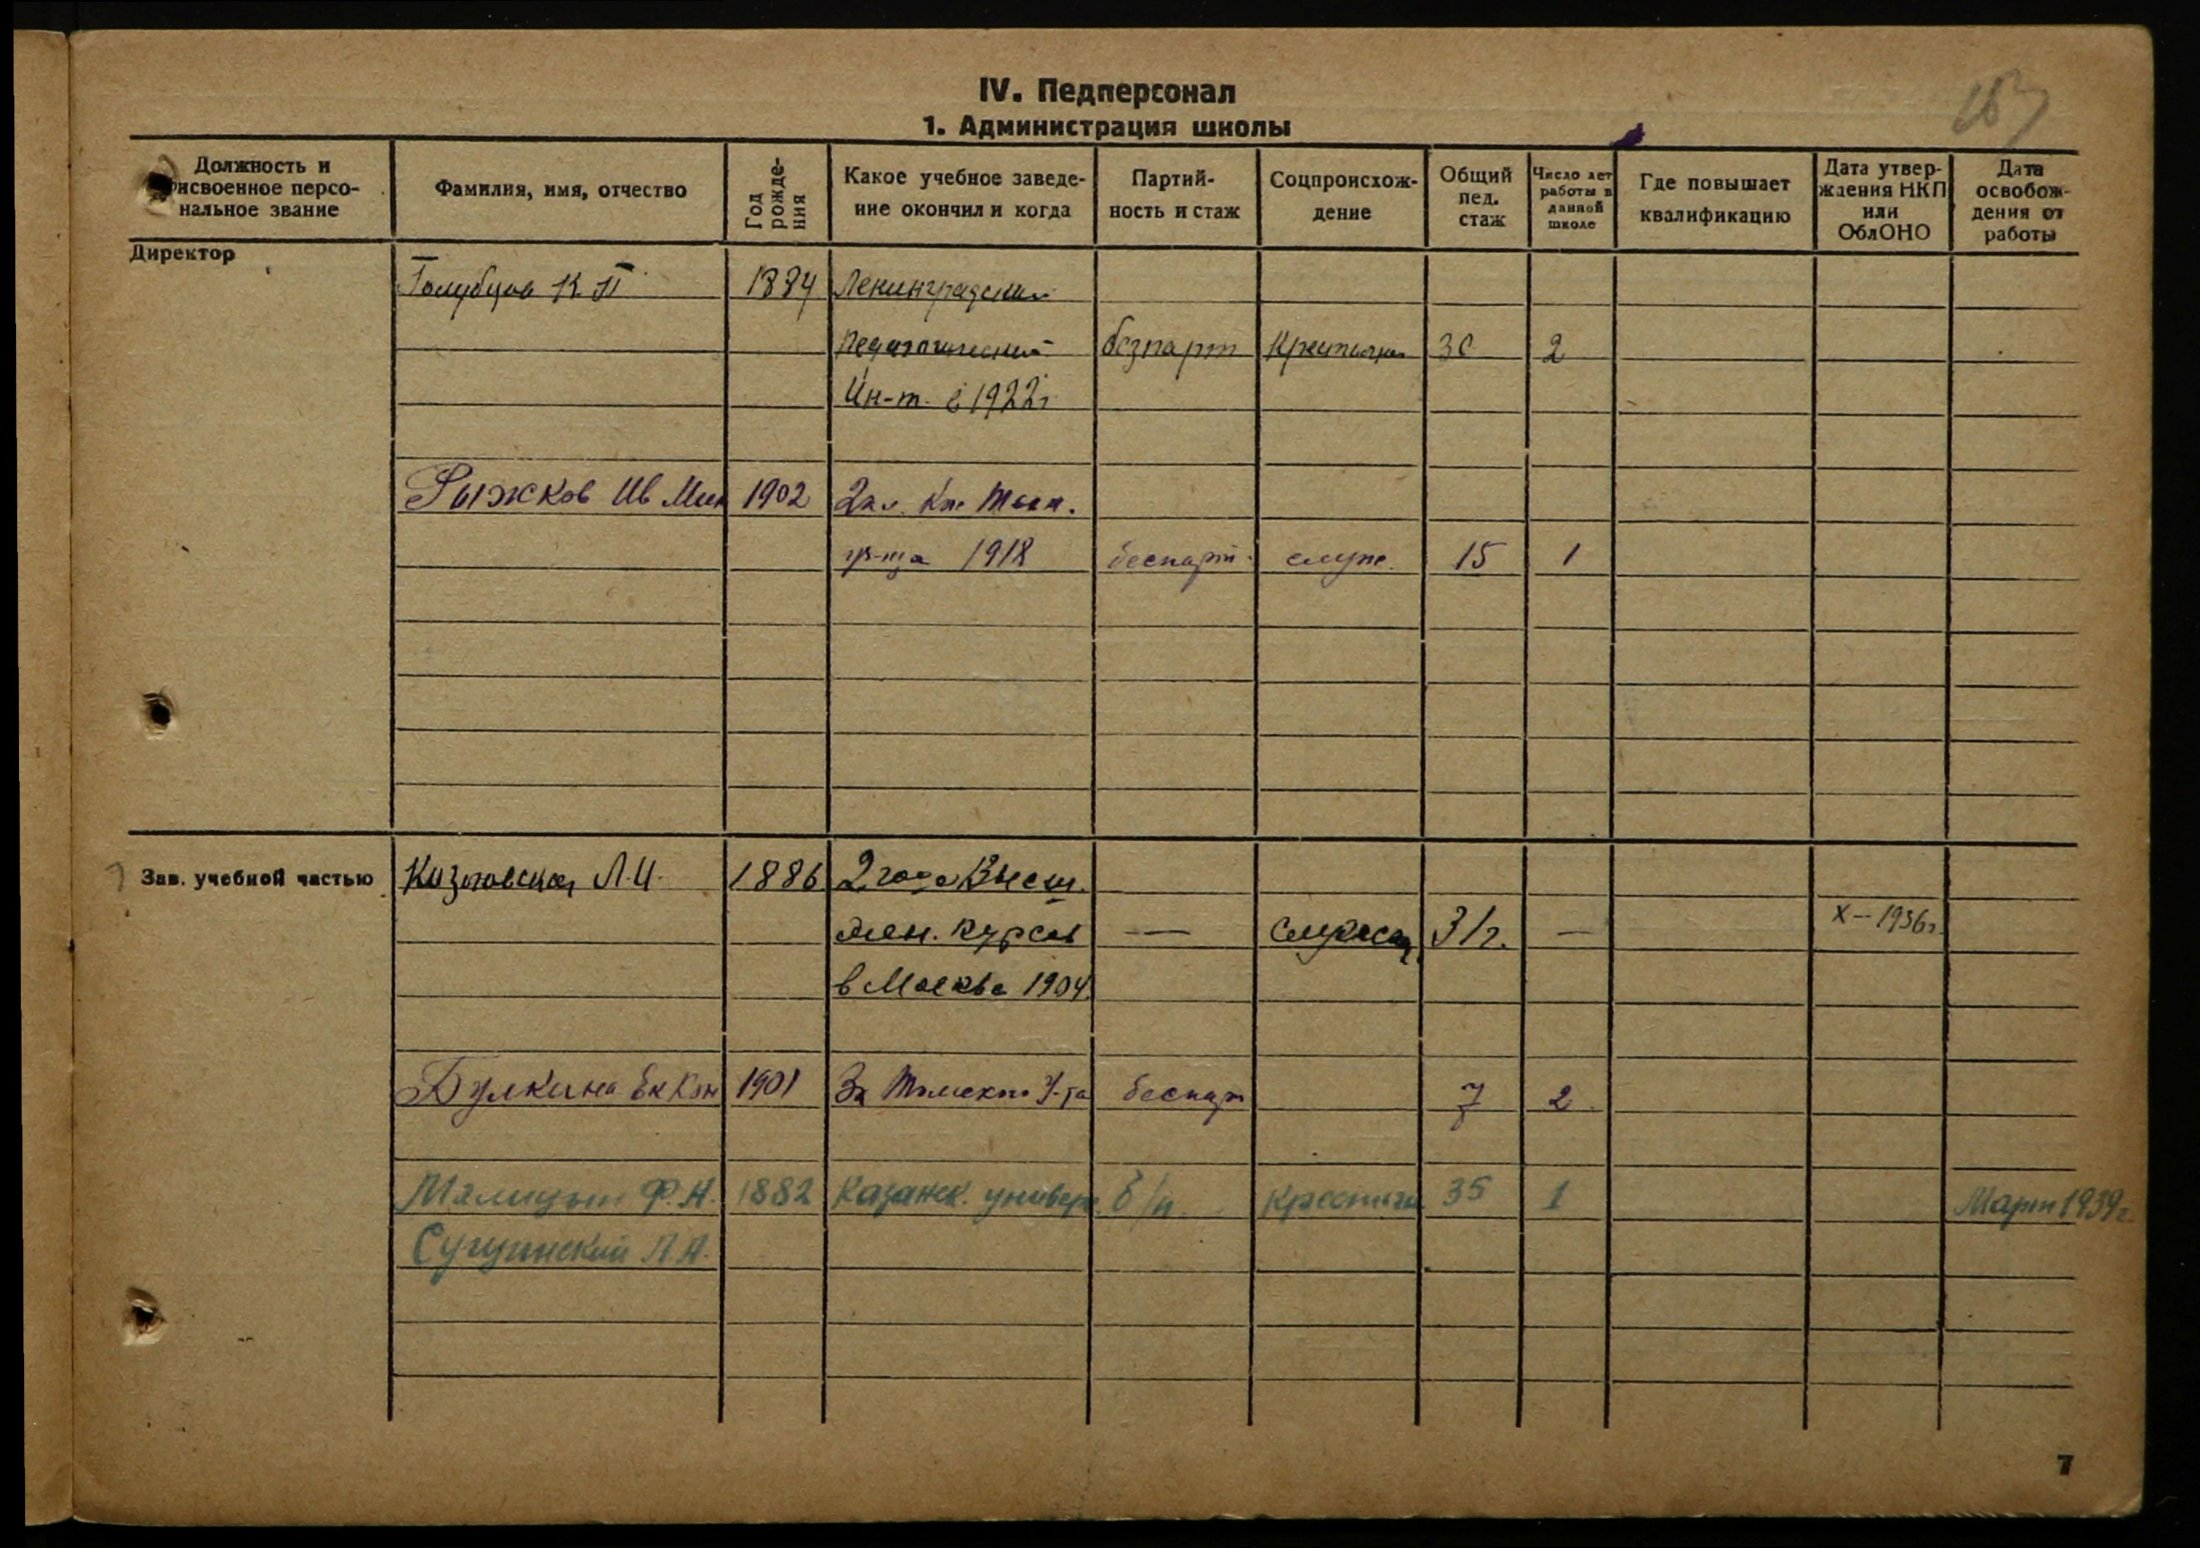 163
IV. Педперсонал
1. Администрация школы
Должность и присвоенное персональное звание
Фамилия, имя, отчество
Год рождения
Какое учебное заведение окончил и когда
Партийность и стаж
Соцпроисхождение
Общий пед. стаж
Число лет работы в данной школе
Где повышает квалификацию
Дата утверждения НКП или ОблОНО
Дата освобождения от работы
Директор
Голубцов К. П. 1884 Ленинградский
Педагогический безпарт Крестьян 30 2
Ин-т. в 1922 г
Рыжков Ив Мих 1902 2 кл.
1918 беспарт. служ. 15 1
Зав. учебной частью Козловская Л. И. 1886 2 года Высш.
жен. курсов — служащ 31 г. — X – 1936 г.
в Москве 1904
Булкина Ек Кон 1901 Томского У-та беспар 7 2
Мялицын Ф. Н. 1882 Казанск. универс. б/п. Крестьян 35 1 Март 1939 г.
Л. А.
7